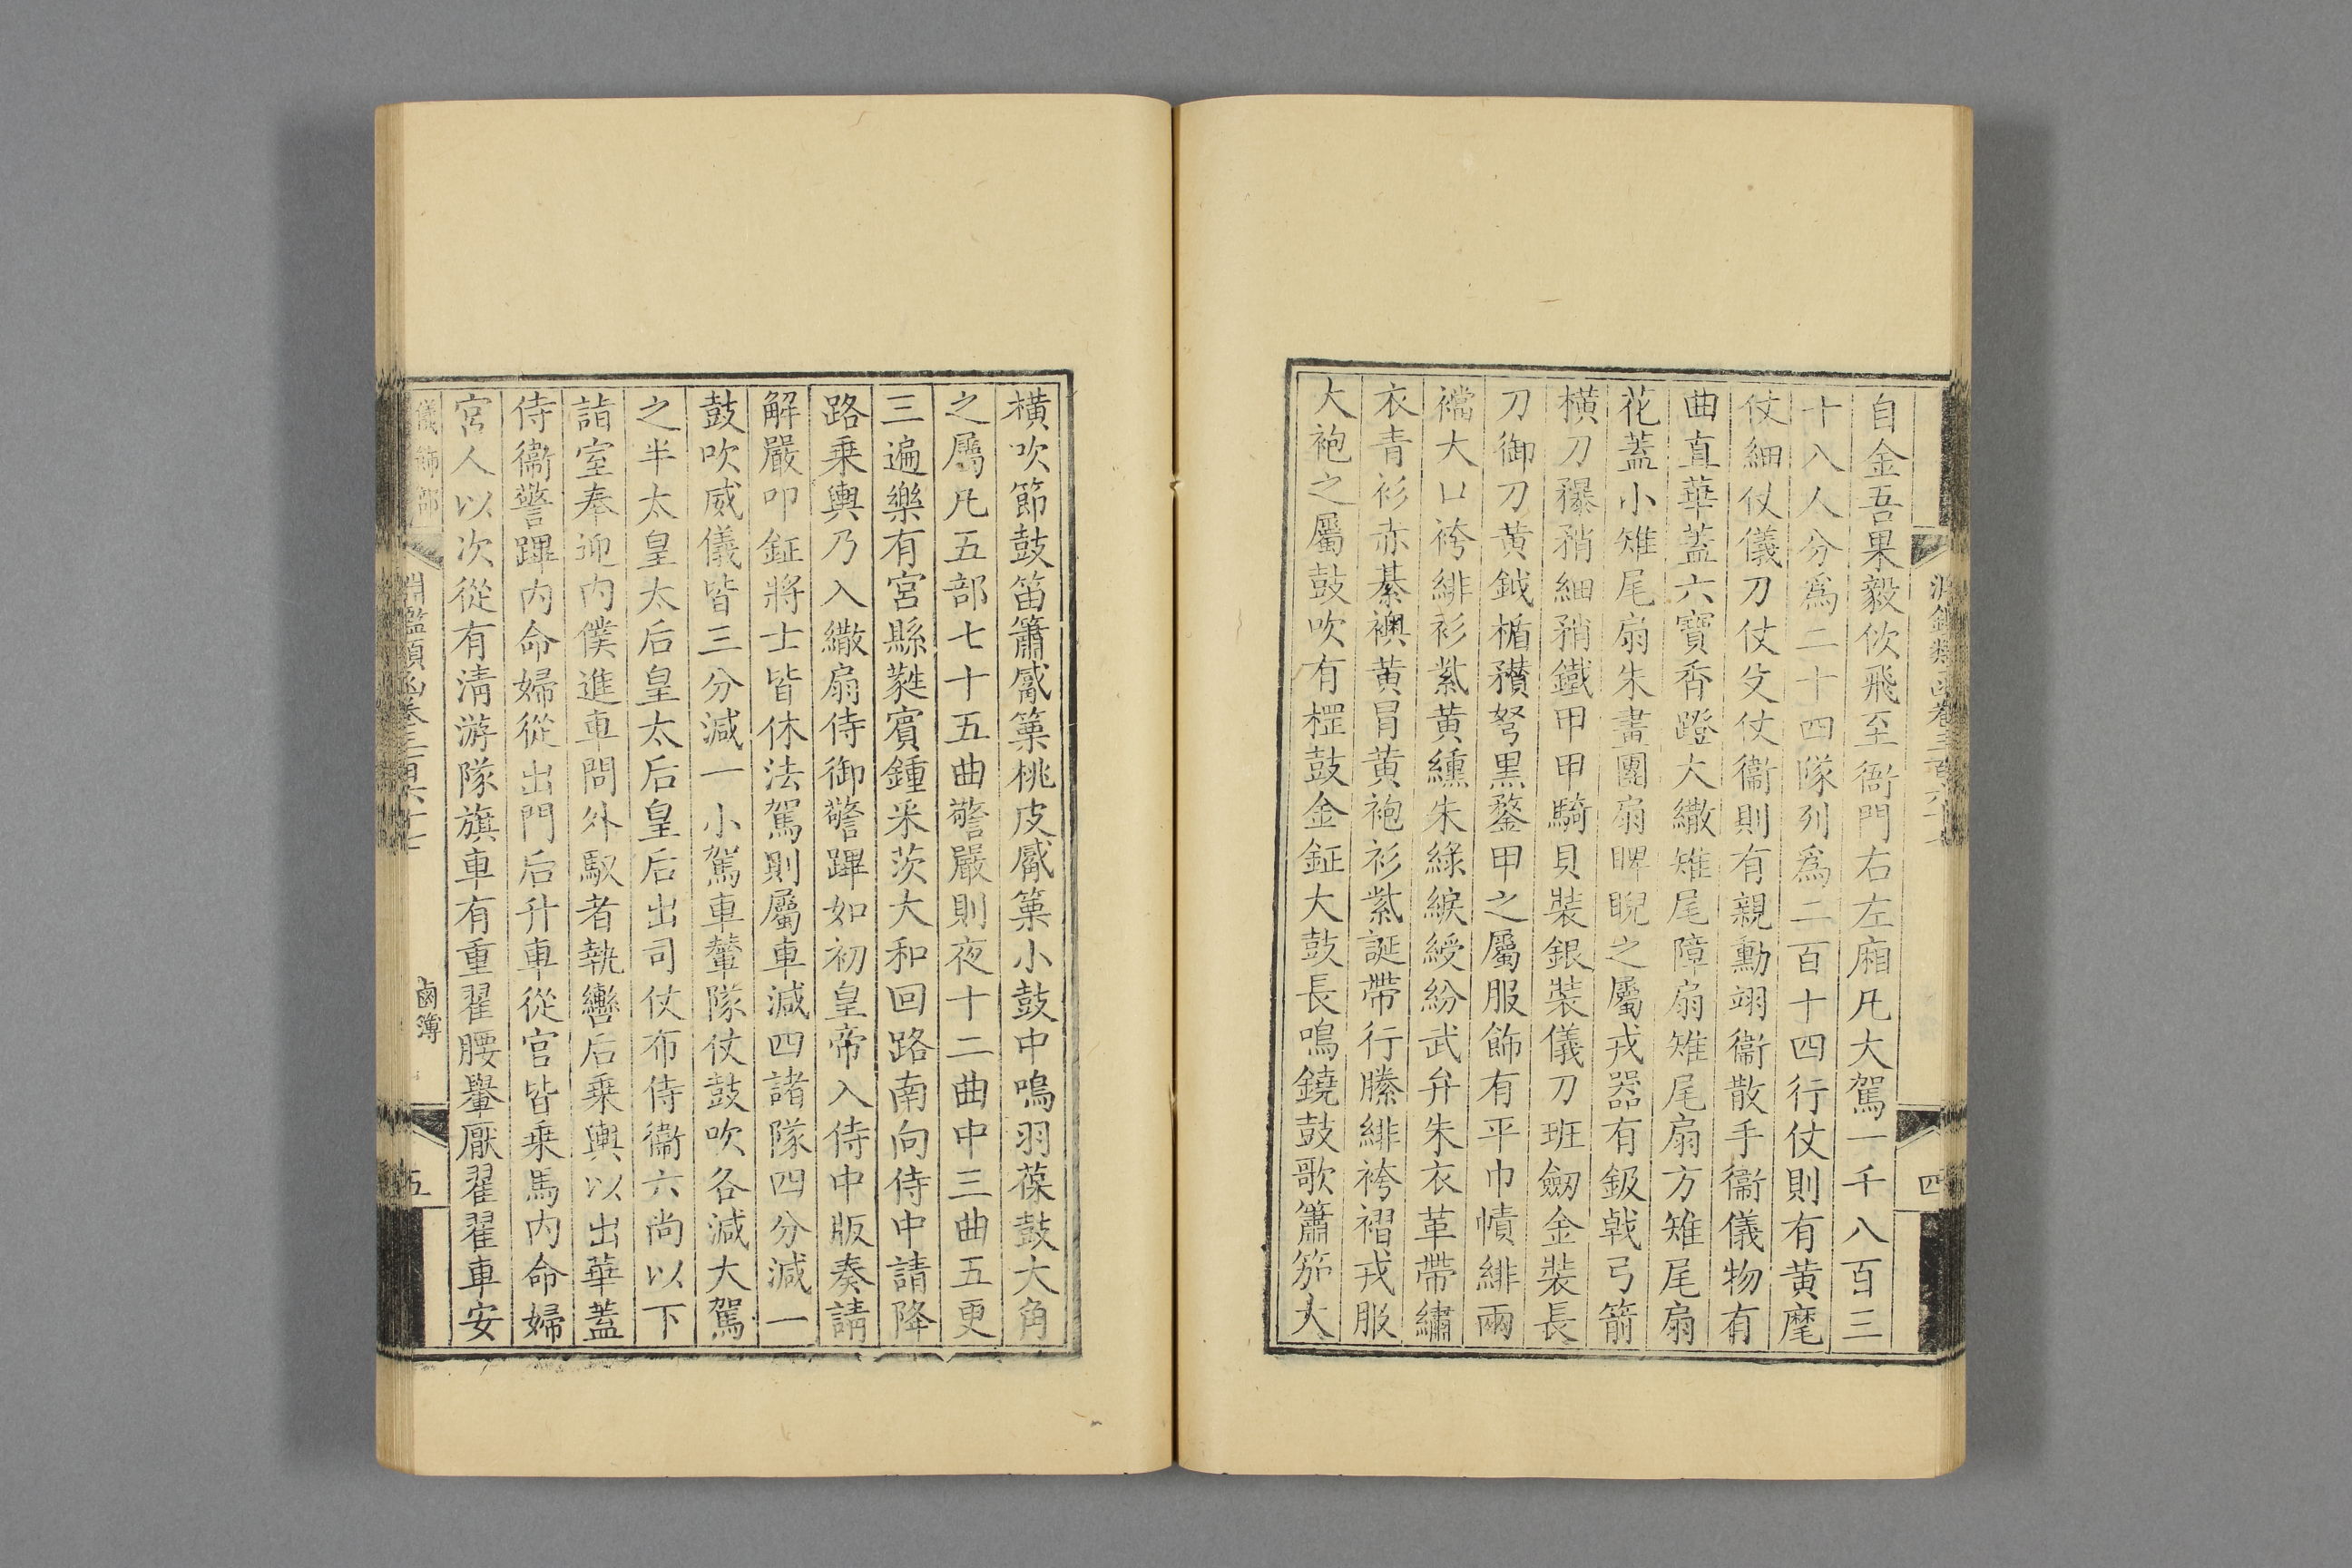 自金吾果毅佽飛至衙門右左廂凡大駕一千八百三
十八人分爲二十四隊列爲二百十四行仗則有黃麾
仗細仗儀刀仗殳仗衞則有親勳翊衞散手衞儀物有
曲直華蓋六寶香蹬大繖雉尾障扇雉尾扇方雉尾扇
花蓋小雉尾扇朱畫團扇睥睨之屬戎器有鈒戟弓箭
橫刀䂍矟細矟鐵甲甲騎具裝銀裝儀刀班劒金裝長
刀御刀黃鉞楯穳弩黑鍪甲之屬服飾有平巾幘緋兩
襠大口袴緋衫紫黃纁朱綠綟綬紛武弁朱衣革帶繡
衣青衫赤綦襖黃冒黃袍衫紫誕帶行縢緋袴褶戎服
大袍之屬鼓吹有棡鼓金鉦大鼓長鳴鐃鼓歌簫笳大
橫吹節鼓笛簫觱篥桃皮觱篥小鼓中鳴羽葆鼓大角
之屬凡五部七十五曲警嚴則夜十二曲中三曲五更
三遍樂有宮縣蕤賓鍾采茨大和回路南向侍中請降
路乗輿乃入繖扇侍御警蹕如初皇帝入侍中版奏請
解嚴叩鉦將士皆休法駕則屬車減四諸隊四分減一
鼓吹威儀皆三分減一小駕車輦隊仗鼓吹各減大駕
之半太皇太后皇太后皇后出司仗布侍衞六尚以下
詣室奉迎内僕進車閤外馭者執轡后乗輿以出華蓋
侍衞警蹕内命婦從出門后升車從官皆乗馬内命婦
宮人以次從有清游隊旗車有重翟腰轝厭翟翟車安
儀飾部
淵鑑類函卷三百六十七
鹵簿
五
淵鑑類函卷三百六十七
四